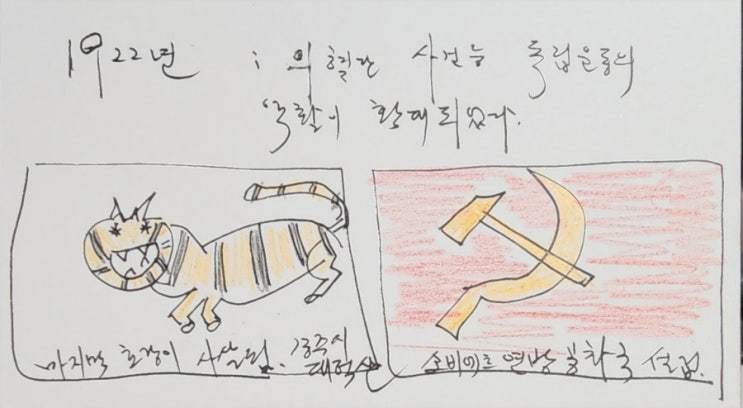 1922년 : 의혈단 사건 등 독립운동의
역할이 확대되었다.
마지막 호랑이 사살됨. 경주시
대덕산
소비에트 연방 공화국 설립.